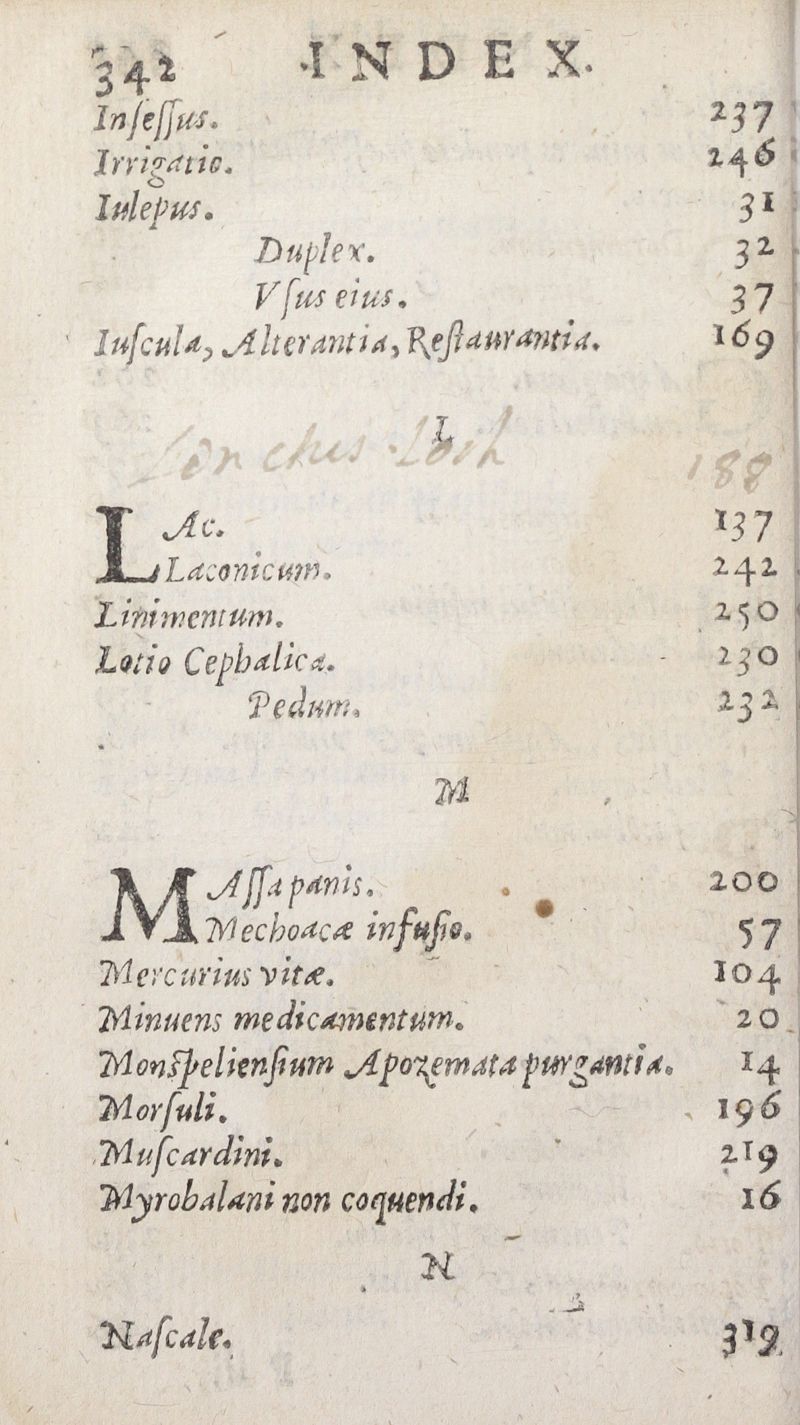 342 INDEX.
Inſeſſus. 237
Irrigatio. 246
Iulepus. 31
Duplex. 32
Vſus eius. 37
Iuſcula, Alterantia, Reſtaurantia. 169
L
188
LAc. 137
Laconicum. 242
Linimentum. 250
Lotio Cephalica. 230
Pedum. 232
M
MAſſa panis. 200
Mechoacæ infuſio. 57
Mercurius vitæ. 104
Minuens medicamentum. 20
Monſpelienſium Apozemata purgantia. 14
Morſuli. 196
Muſcardini. 219
Myrobalani non coquendi. 16
N
Naſcale. 319